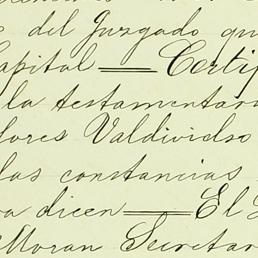 del Juzgado qu
Capital — Certif
la testamentar
lores Valdivielso
las constancias
ra dicen — El
Moran Secretar